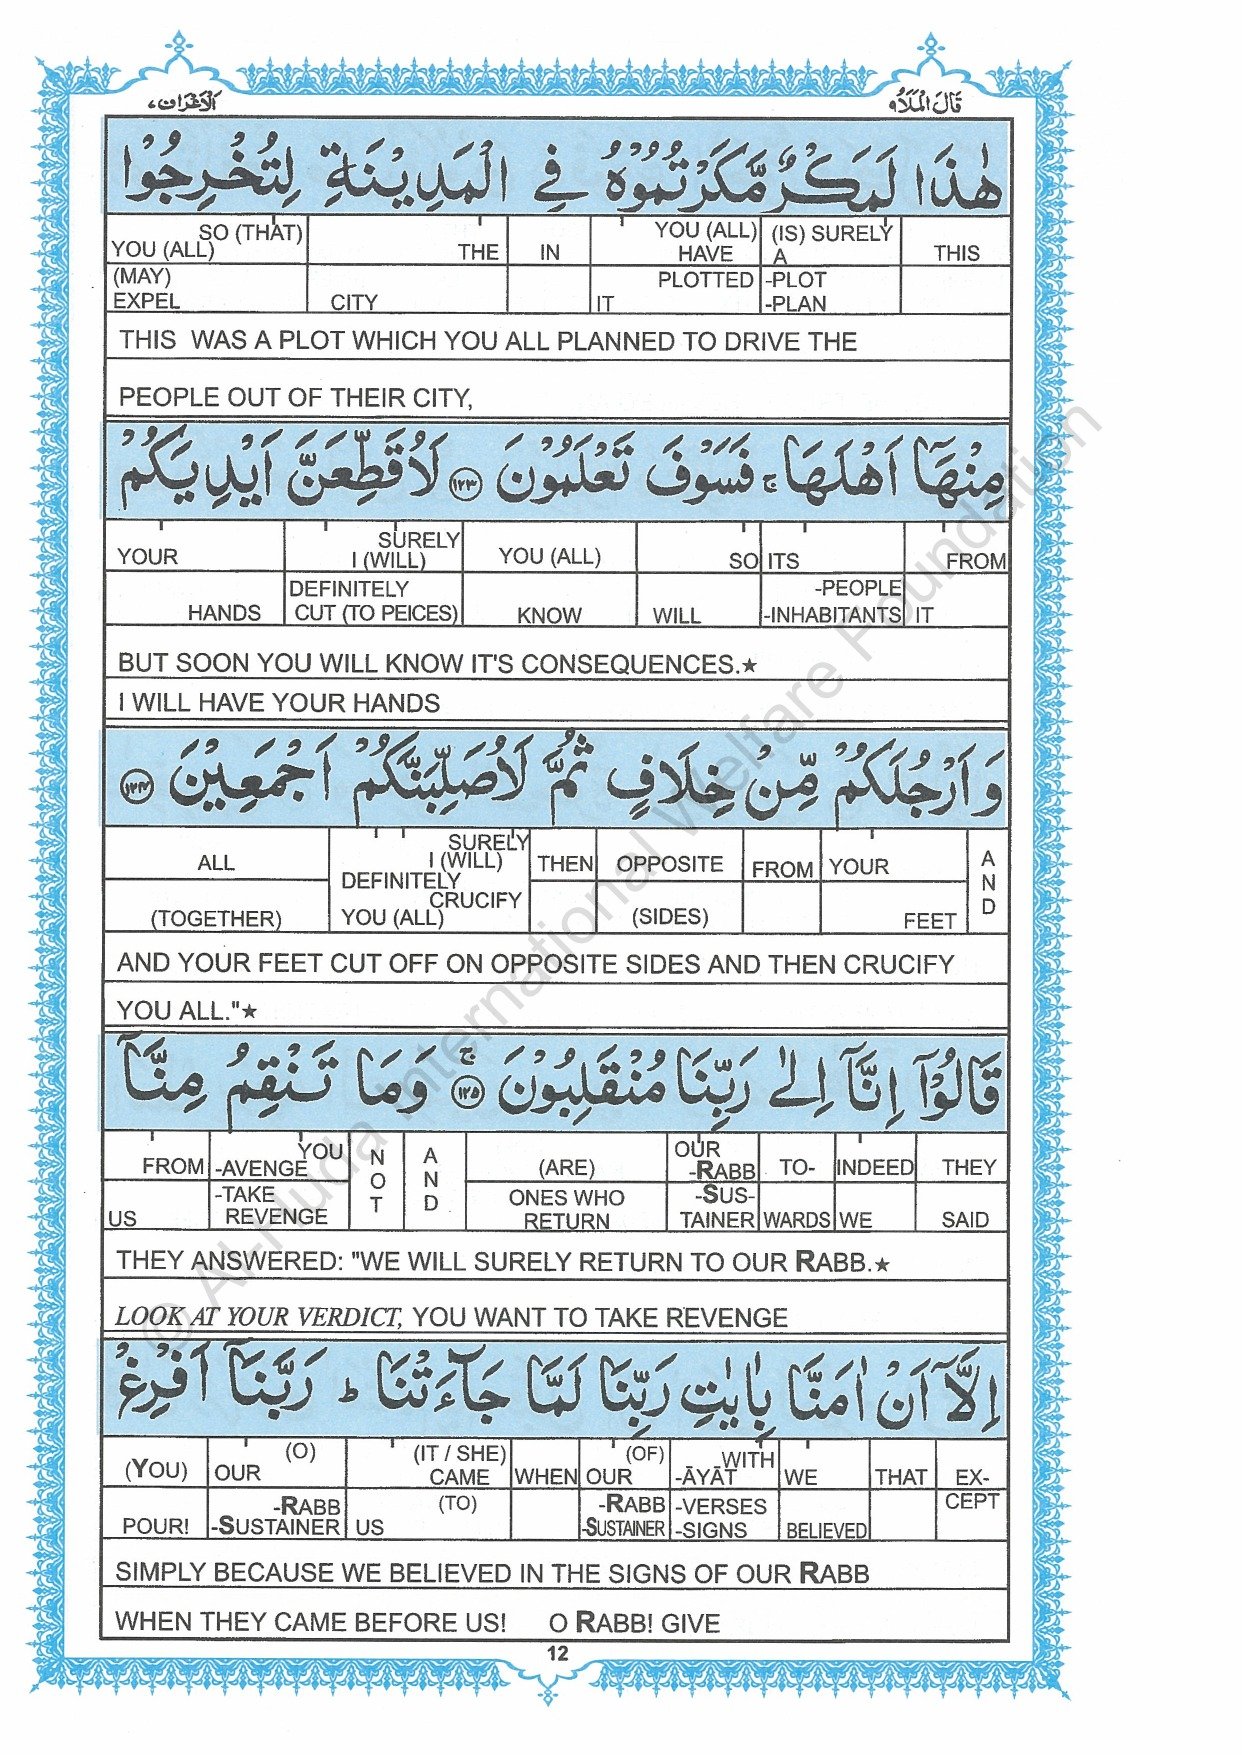 الاعراف ٧
قَالَ الْمَلَاُ ٩
هٰذَا لَمَكْرٌ مَّكَرْتُمُوْهُ فِي الْمَدِيْنَةِ لِتُخْرِجُوْا
THIS (IS) SURELY A -PLOT -PLAN YOU (ALL) HAVE PLOTTED IT IN THE CITY SO (THAT) YOU (ALL) (MAY) EXPEL
THIS WAS A PLOT WHICH YOU ALL PLANNED TO DRIVE THE
PEOPLE OUT OF THEIR CITY,
مِنْهَآ اَهْلَهَا ۚ فَسَوْفَ تَعْلَمُوْنَ ١٢٣ لَاُقَطِّعَنَّ اَيْدِيَكُمْ
FROM IT ITS -PEOPLE -INHABITANTS SO WILL YOU (ALL) KNOW SURELY I (WILL) DEFINITELY CUT (TO PEICES) YOUR HANDS
BUT SOON YOU WILL KNOW IT'S CONSEQUENCES.★
I WILL HAVE YOUR HANDS
وَاَرْجُلَكُمْ مِّنْ خِلَافٍ ثُمَّ لَاُصَلِّبَنَّكُمْ اَجْمَعِيْنَ ١٢٤
AND YOUR FEET FROM OPPOSITE (SIDES) THEN SURELY I (WILL) DEFINITELY CRUCIFY YOU (ALL) ALL (TOGETHER)
AND YOUR FEET CUT OFF ON OPPOSITE SIDES AND THEN CRUCIFY
YOU ALL."★
قَالُوْٓا اِنَّآ اِلٰى رَبِّنَا مُنْقَلِبُوْنَ ۚ ١٢٥ وَمَا تَنْقِمُ مِنَّآ
THEY SAID INDEED WE TO- WARDS OUR -RABB -SUS- TAINER (ARE) ONES WHO RETURN AND NOT YOU -AVENGE -TAKE REVENGE FROM US
THEY ANSWERED: "WE WILL SURELY RETURN TO OUR RABB.★
LOOK AT YOUR VERDICT, YOU WANT TO TAKE REVENGE
اِلَّآ اَنْ اٰمَنَّا بِاٰيٰتِ رَبِّنَا لَمَّا جَآءَتْنَا ؕ رَبَّنَآ اَفْرِغْ
EX- CEPT THAT WE BELIEVED WITH -ĀYĀT -VERSES -SIGNS (OF) OUR -RABB -SUSTAINER WHEN (IT / SHE) CAME (TO) US (O) OUR -RABB -SUSTAINER (YOU) POUR!
SIMPLY BECAUSE WE BELIEVED IN THE SIGNS OF OUR RABB
WHEN THEY CAME BEFORE US! O RABB! GIVE
12
© Al-Huda International Welfare Foundation